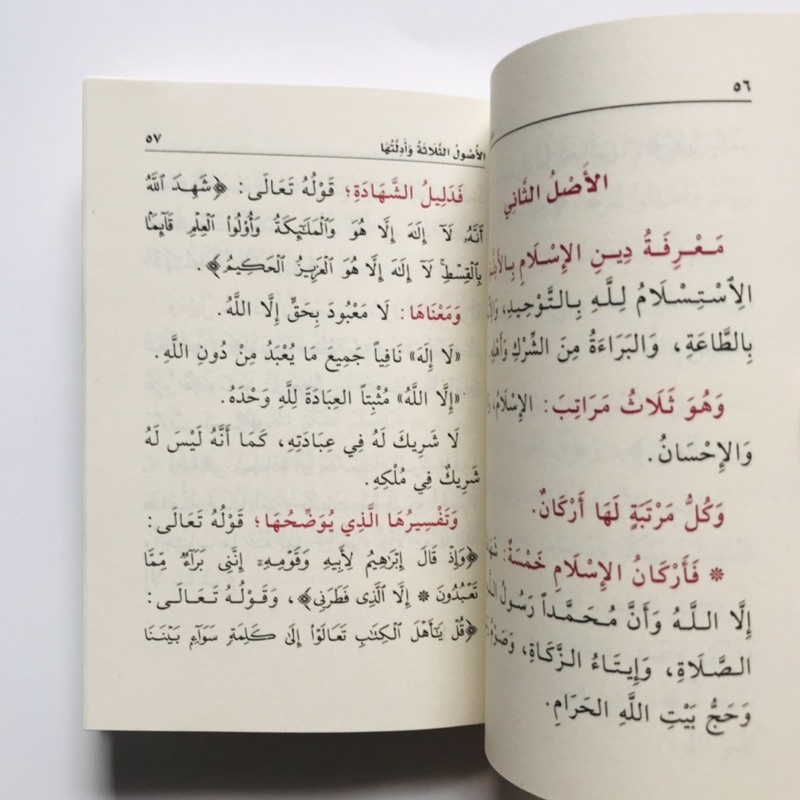 ٥٦
الأَصْلُ الثَّانِي
مَعْرِفَةُ دِينِ الإِسْلَامِ
الِاسْتِسْلَامُ لِلَّهِ بِالتَّوْحِيدِ،
بِالطَّاعَةِ، وَالبَرَاءَةُ مِنَ الشِّرْكِ
وَهُوَ ثَلَاثُ مَرَاتِبَ: الإِسْلَامُ،
وَالإِحْسَانُ.
وَكُلُّ مَرْتَبَةٍ لَهَا أَرْكَانٌ.
* فَأَرْكَانُ الإِسْلَامِ خَمْسَةٌ:
إِلَّا اللَّهُ وَأَنَّ مُحَمَّداً رَسُولُ
الصَّلَاةِ، وَإِيتَاءُ الزَّكَاةِ،
وَحَجُّ بَيْتِ اللَّهِ الحَرَامِ.
الأُصُولُ الثَّلَاثَةُ وَأَدِلَّتُهَا ٥٧
فَدَلِيلُ الشَّهَادَةِ؛ قَوْلُهُ تَعَالَى: ﴿شَهِدَ ٱللَّهُ
أَنَّهُۥ لَآ إِلَٰهَ إِلَّا هُوَ وَٱلْمَلَٰٓئِكَةُ وَأُو۟لُوا۟ ٱلْعِلْمِ قَآئِمًۢا
بِٱلْقِسْطِۚ لَآ إِلَٰهَ إِلَّا هُوَ ٱلْعَزِيزُ ٱلْحَكِيمُ﴾.
وَمَعْنَاهَا: لَا مَعْبُودَ بِحَقٍّ إِلَّا اللَّهُ.
«لَا إِلَهَ» نَافِياً جَمِيعَ مَا يُعْبَدُ مِنْ دُونِ اللَّهِ.
«إِلَّا اللَّهُ» مُثْبِتاً العِبَادَةَ لِلَّهِ وَحْدَهُ.
لَا شَرِيكَ لَهُ فِي عِبَادَتِهِ، كَمَا أَنَّهُ لَيْسَ لَهُ
شَرِيكٌ فِي مُلْكِهِ.
وَتَفْسِيرُهَا الَّذِي يُوَضِّحُهَا؛ قَوْلُهُ تَعَالَى:
﴿وَإِذْ قَالَ إِبْرَٰهِيمُ لِأَبِيهِ وَقَوْمِهِۦٓ إِنَّنِى بَرَآءٌ مِّمَّا
تَعْبُدُونَ * إِلَّا ٱلَّذِى فَطَرَنِى﴾، وَقَوْلُهُ تَعَالَى:
﴿قُلْ يَٰٓأَهْلَ ٱلْكِتَٰبِ تَعَالَوْا۟ إِلَىٰ كَلِمَةٍ سَوَآءٍۭ بَيْنَنَا